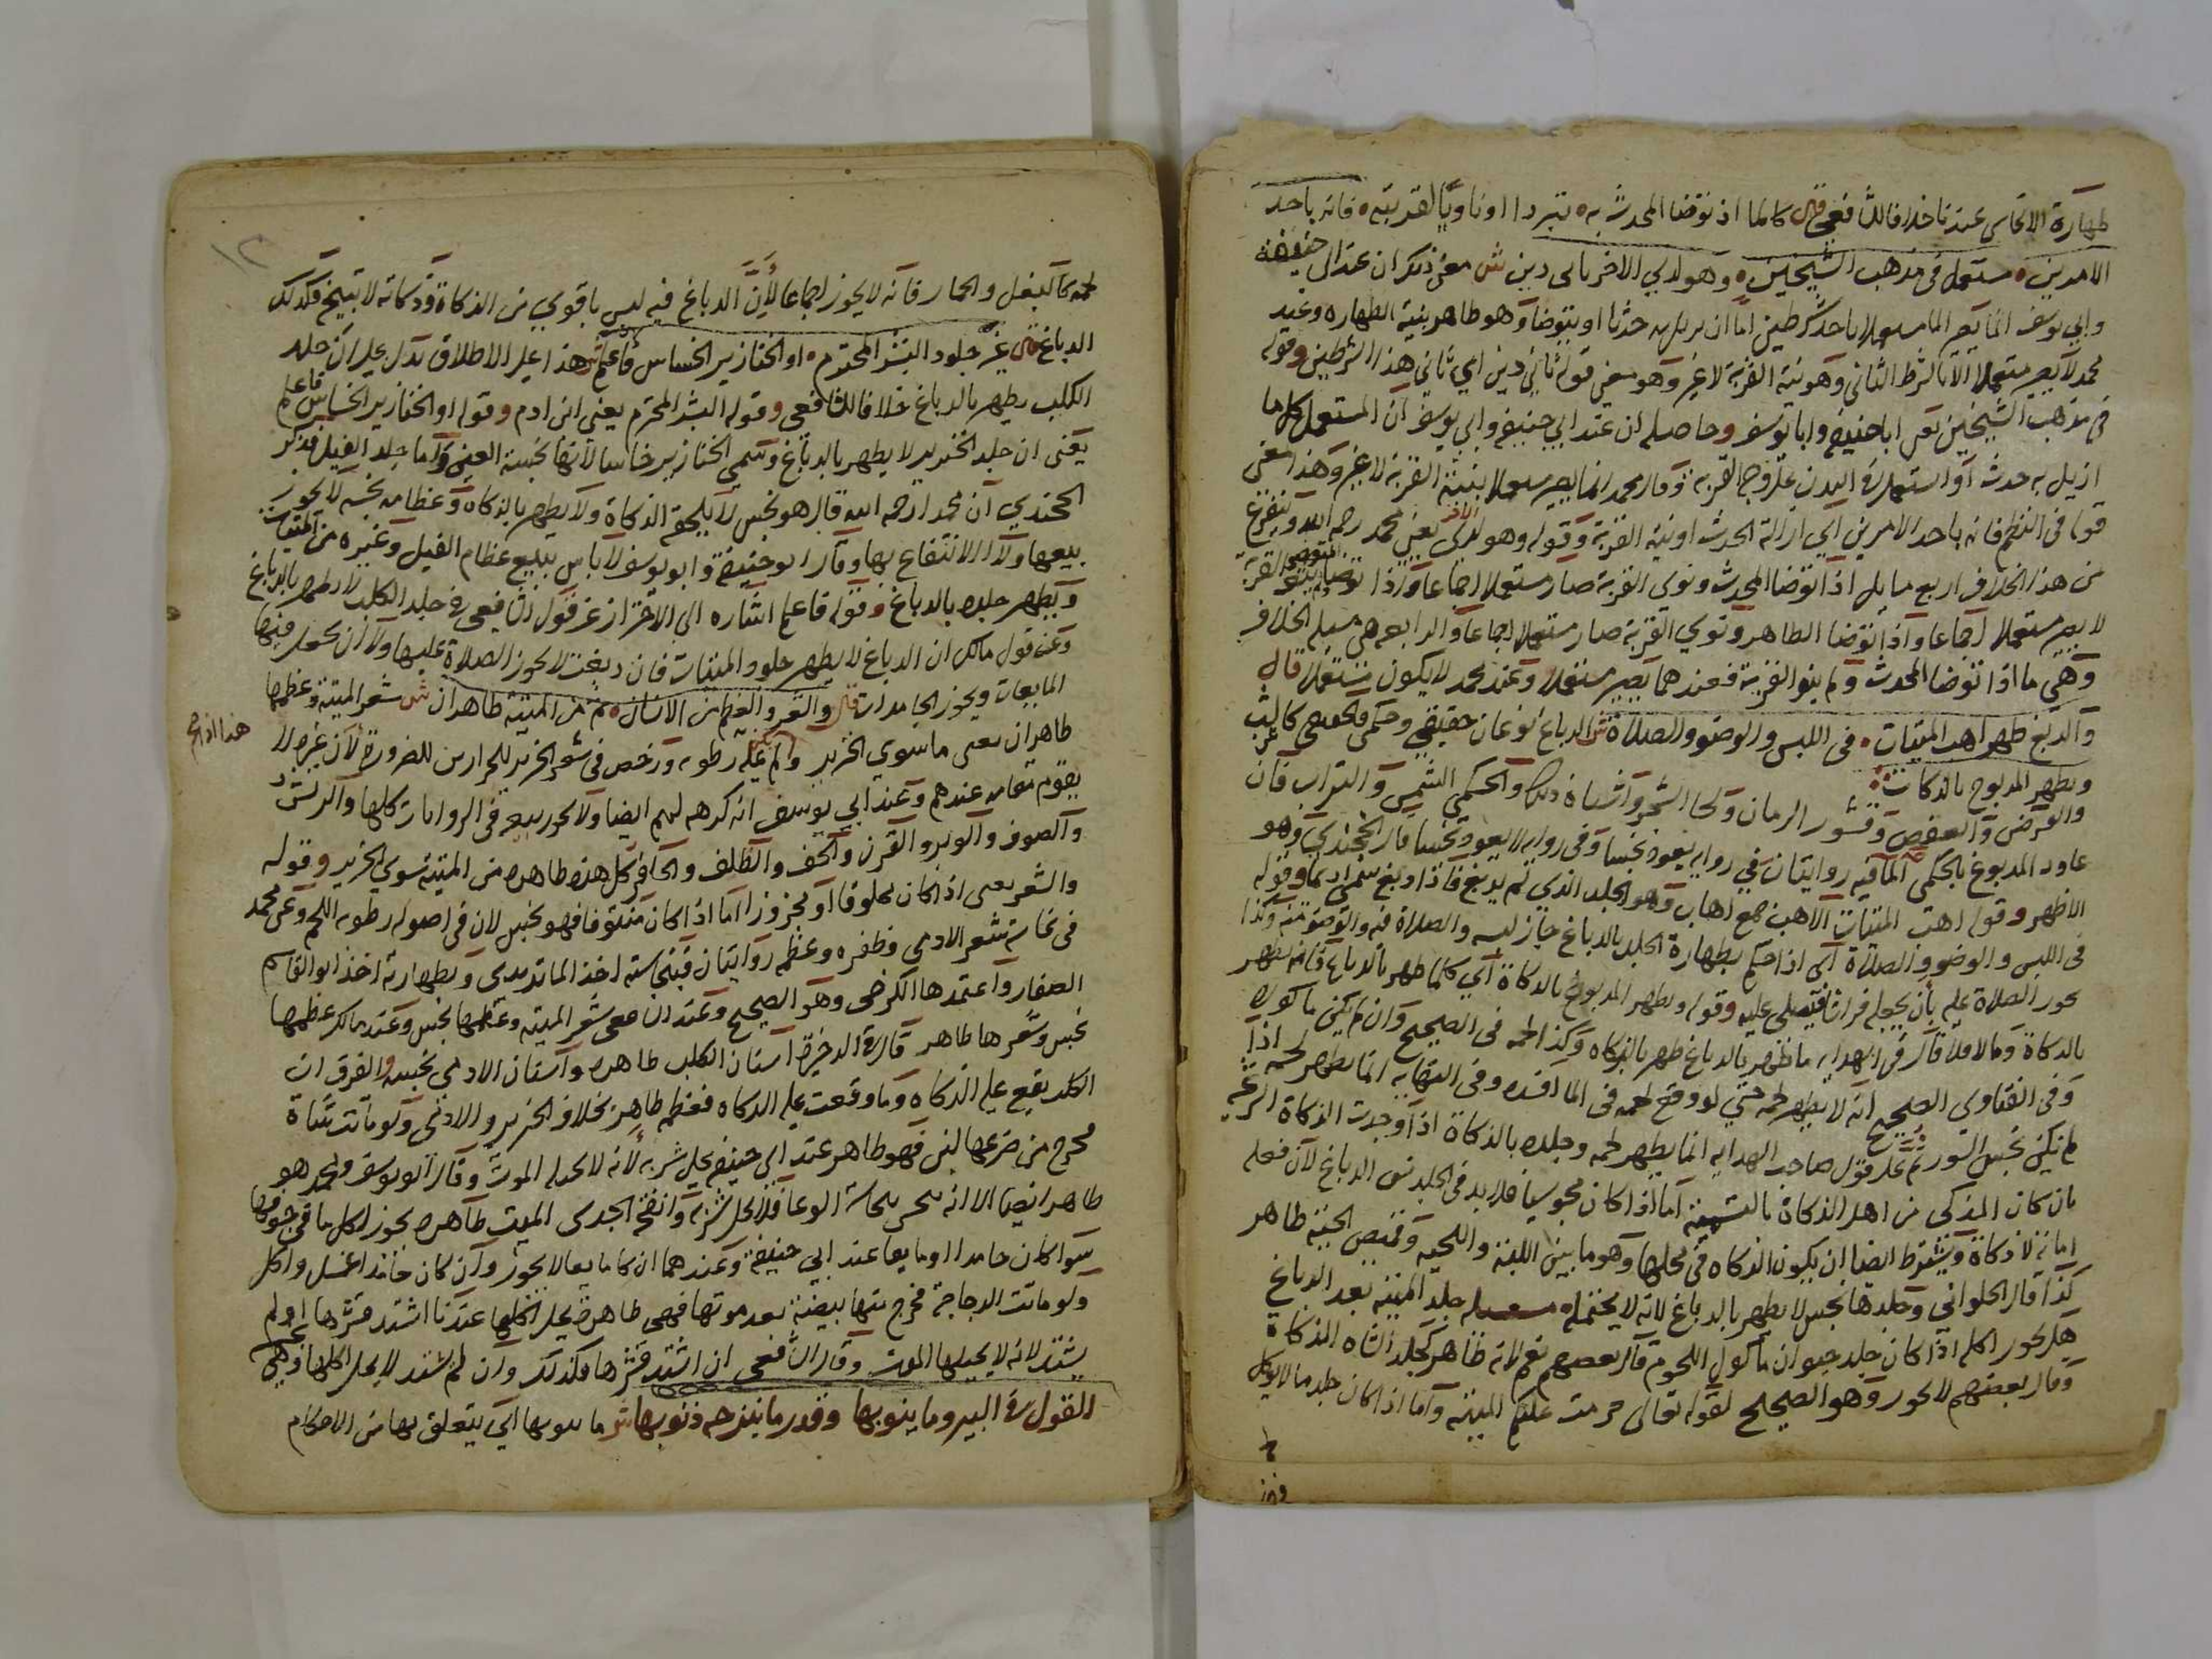 طهارة الانجاس عندنا خلافا للشافعي قال كالما اذ توضا المحدث به تبردا اوناويا لقربته فانه باحد
الامرين مستعمل في مذهب الشيخين وهو لدي الاخر باي دين ش معنى ذلك ان عند ابي حنيفة
وابي يوسف انما يصير الما مستعملا باحد شرطين اما ان يزيل به حدثا او يتوضا وهو طاهر بنية الطهاره وعند
محمد لا يصير مستعملا الا بالشرط الثاني وهو نية القربة لا غير وهو معنى قوله ثاني دين اي ثاني هذا الشرطين وقوله
في مذهب الشيخين يعني ابا حنيفة وابا يوسف وحاصله ان عند ابي حنيفة وابي يوسف ان المستعمل كل ما
ازيل به حدث او استعمل في البدن على وجه القربة وقال محمد انما يصير مستعملا بنية القربة لا غير وهذا معنى
قوله في النظم فانه باحد الامرين اي ازالة الحدث او نية القربة وقوله وهو لدي الاخر يعني محمد رحمه الله ويتفرع
من هذا الخلاف اربع مسايل اذا توضا المحدث ونوى القربة صار مستعملا اجماعا واذا توضا المتوضي ولم ينو القربة
لا يصير مستعملا اجماعا واذا توضا الطاهر ونوى القربة صار مستعملا اجماعا والرابعه هي مسئلة الخلاف
وهي ما اذا توضا المحدث ولم ينو القربة فعندهما يصير مستعملا وعند محمد لا يكون مستعملا قال
والدبغ طهر اهب الميتات في اللبس والوضو والصلاة ش الدباغ نوعان حقيقي وحكمي فالحقيقي كالشب
ويطهر المدبوح بالذكات
والقرض والعفص وقشور الرمان ولحا الشجر واشباه ذلك والحكمي الشمس والتراب فان
عاود المدبوغ بالحكمي الما فيه روايتان في رواية يعود نجسا وفي رواية لا يعود نجسا قال الخجندي وهو
الاظهر وقوله اهب الميتات الاهب جمع اهاب وهو الجلد الذي لم يدبغ فاذا دبغ سمي اديما وقوله
في اللبس والوضو والصلاة اي اذا حكم بطهارة الجلد بالدباغ جاز لبسه والصلاة فيه والوضو منه وكذا
يجوز الصلاة عليه بان يجعله فراشا فيصلي عليه وقوله ويطهر المذبوح بالذكاة اي كلما طهر بالدباغ فانه يطهر
بالذكاة وما لا فلا قال في الهداية ما طهر بالدباغ طهر بالذكاه وكذا لحمه في الصحيح وان لم يكن ماكولا
وفي الفتاوي الصحيح انه لا يطهر لحمه حتى لو وقع لحمه في الما افسده وفي النهايه انما يطهر لحمه اذا
لم يكن نجس السور ثم على قول صاحب الهدايه انما يطهر لحمه وجلده بالذكاة اذا وجدت الذكاة الشرعيه
بان كان المذكي من اهل الذكاة بالتسمية اما اذا كان مجوسيا فلا بد في الجلد من الدباغ لان فعله
اماتة لا ذكاة ويشترط ايضا ان يكون الذكاه في محلها وهو ما بين اللبة واللحيه وقميص الحيه طاهر
كذا قال الحلواني وجلدها نجس لا يطهر بالدباغ لانه لا يحتمله مسئله جلد الميتة بعد الدباغ
هل يجوز اكله اذا كان جلد حيوان ماكول اللحوم قال بعضهم نعم لانه طاهر كجلد الشاه المذكاة
وقال بعضهم لا يجوز وهو الصحيح لقوله تعالى حرمت عليكم الميتة واما اذا كان جلد ما لا يوكل
١٢
لحمه كالبغل والحمار فانه لا يجوز اجماعا لان الدباغ فيه ليس باقوى من الذكاة وذكاته لا تبيحه فكذلك
الدباغ قال غير جلود البشر المحترم او الخنازير الخساس فاعلم ش هذا على الاطلاق يدل على ان جلد
الكلب يطهر بالدباغ خلافا للشافعي وقوله البشر المحترم يعني ابن ادم وقوله او الخنازير الخساس فاعلم
يعني ان جلد الخنزير لا يطهر بالدباغ وسمي الخنازير خساسا لانها نجسة العين واما جلد الفيل فذكر
الخجندي ان محمدا رحمه الله قال هو نجس لا يلحقه الذكاة ولا يطهر بالذكاة وعظامه نجسه لا يجوز
بيعها ولا الانتفاع بها وقال ابو حنيفة وابو يوسف لا باس ببيع عظام الفيل وغيره من الميتات
ويطهر جلده بالدباغ وقوله فاعلم اشاره الى الاحتراز عن قول الشافعي في جلد الكلب لا يطهر بالدباغ
وعن قول مالك ان الدباغ لا يطهر جلود الميتات فان دبغت لا يجوز الصلاة عليها ولا ان يجعل فيها
المايعات ويجوز الجامدات قال والشعر والعظم من الانسان ثم من الميتة طاهران ش شعر الميتة وعظمها
طاهران يعني ما سوى الخنزير ولم عليه رطوبه ورخص في شعر الخنزير للخرازين للضرورة لان غيره لا
هذا اذا لم
يقوم مقامه عندهم وعند ابي يوسف انه كرهه لهم ايضا ولا يجوز بيعه في الروايات كلها والريش
والصوف والوبر والقرن والخف والظلف والحافر كل هذه طاهره من الميتة سوى الخنزير وقوله
والشعر يعني اذا كان محلوقا او مجزوزا اما اذا كان منتوفا فهو نجس لان في اصوله رطوبه اللحم وعن محمد
في نجاسة شعر الادمي وظفره وعظمه روايتان فبنجاسته اخذ الماتريدي وبطهارته اخذ ابو القاسم
الصفار واعتمدها الكرخي وهو الصحيح وعند الشافعي شعر الميته وعظمها نجس وعند مالك عظمها
نجس وشعرها طاهر قال في الذخيرة اسنان الكلب طاهره واسنان الادمي نجسه والفرق ان
الكلب يقع عليه الذكاه وما وقعت عليه الذكاه فعظمه طاهر بخلاف الخنزير والادمي ولو ماتت شاة
فخرج من ضرعها لبن فهو طاهر عند ابي حنيفه يحل شربه لانه لا يحله الموت وقال ابو يوسف ومحمد هو
طاهر ايضا الا انه نجس بنجاسة الوعا فلا يحل شربه وانفحة الجدي الميت طاهره يجوز اكل ما في جوفها
سوا كان جامدا او مايعا عند ابي حنيفة وعندهما ان كان مايعا لا يجوز وان كان جامدا غسل واكل
ولو ماتت الدجاجة فخرج منها بيضة بعد موتها فهي طاهرة يحل اكلها عندنا اشتد قشرها او لم
يشتد لانه لا يحيلها الموت وقال الشافعي ان اشتد قشرها فكذلك وان لم يشتد لا يحل اكلها وهي نجسة
القول في البير وما ينوبها وقدر ما ينزحه ذنوبها ش ما ينوبها اي يتعلق بها من الاحكام